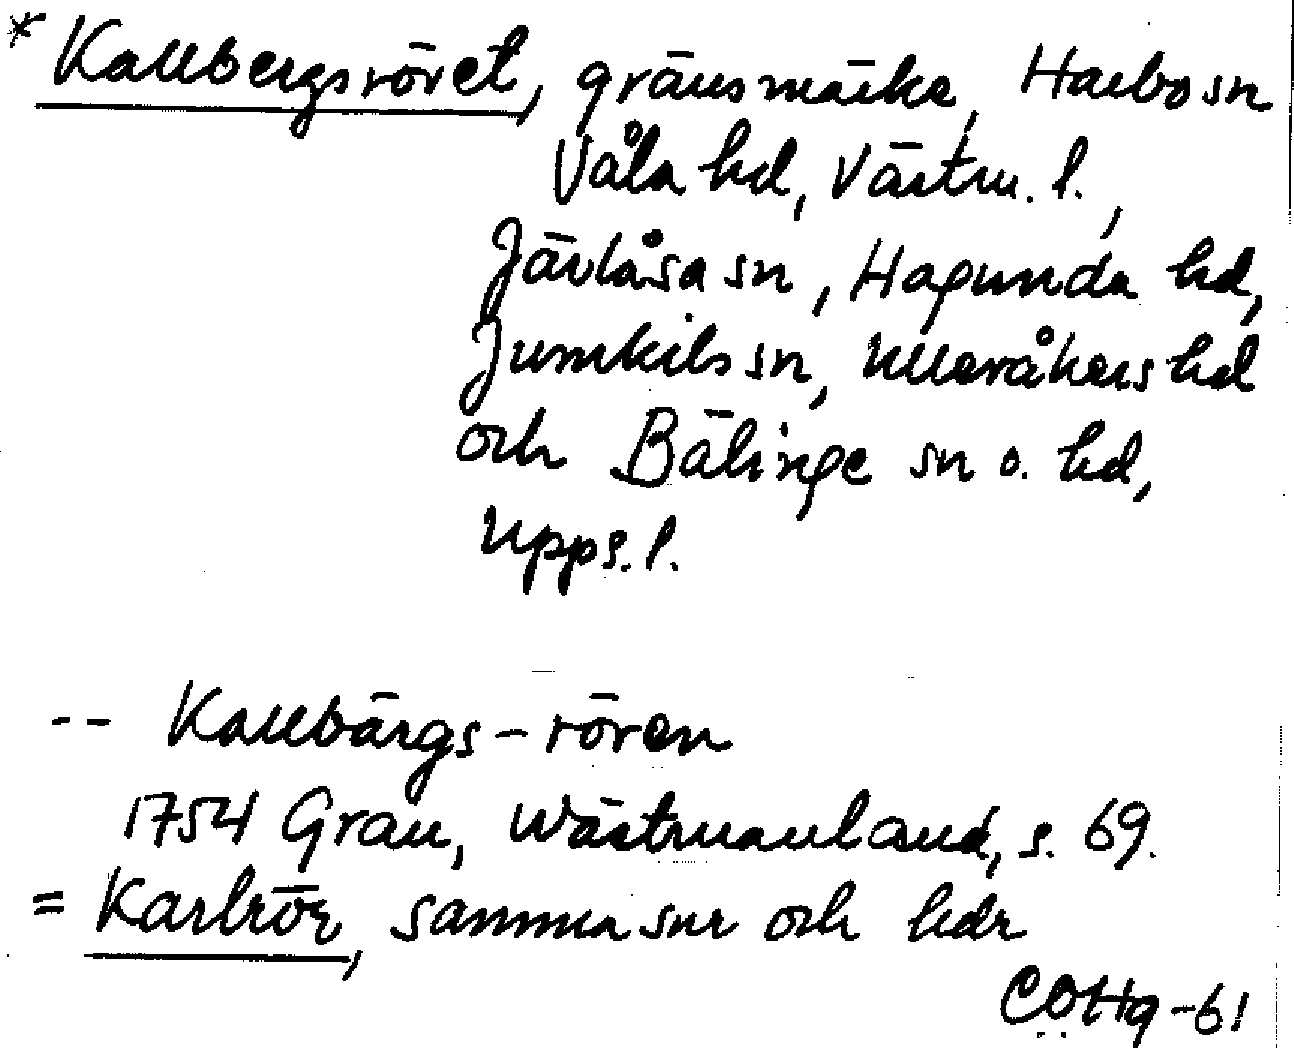 * Kallbergsröret, gränsmärke, Harbo sn
Våla hd, Västm. l.,
Järlåsa sn, Hagunda hd,
Jumkils sn, Ulleråkers hd
och Bälinge sn o. hd,
Upps. l.
-- Kallbärgs-rören
1754 Grau, Wästmanland, s. 69.
= Karlrör, samma snr och hdr
CÖHg -61